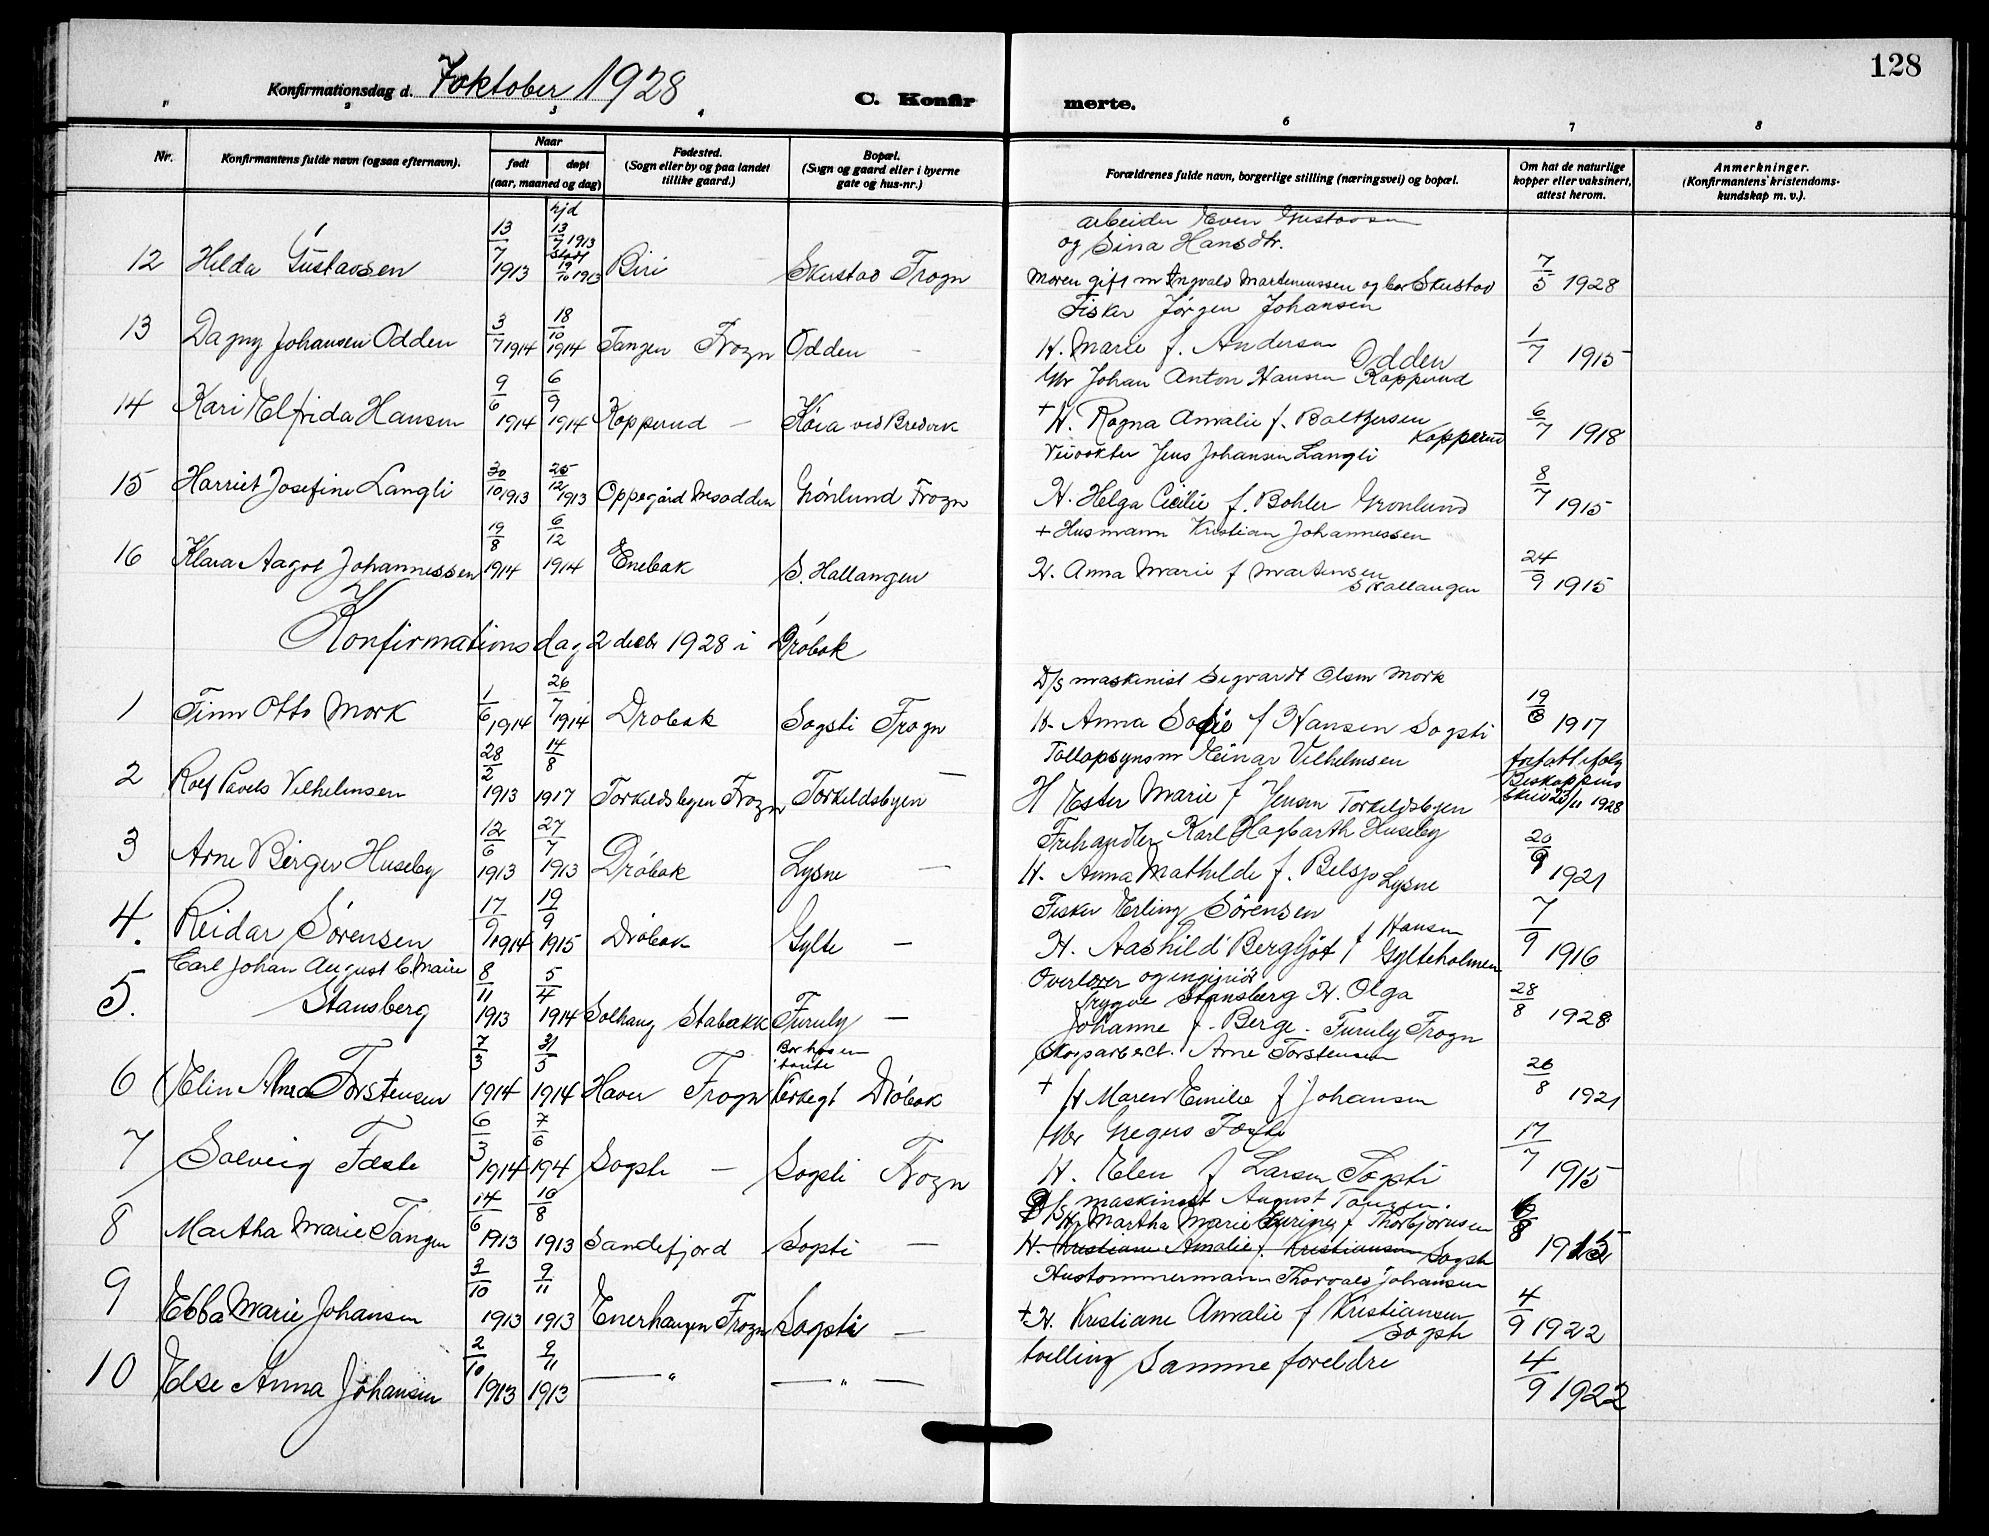 128
Konfirmationsdag d. 7 oktober 1928
C. Konfirmerte.
2 3 4 6 7 8
Nr. Konfirmantens fulde navn (ogsaa efternavn). Naar født døpt (aar, maaned og dag) Fødested. (Sogn eller by og paa landet tillike gaard.) Bopæl. (Sogn og gaard eller i byerne gate og hus-nr.) Forældrenes fulde navn, borgerlige stilling (næringsvei) og bopæl. Om hat de naturlige kopper eller vaksinert, attest herom. Anmerkninger. (Konfirmantens kristendoms- kundskap m. v.).
arbeider Even Gustavsen
og Sina Hansdtr.
12 Hilda Gustavsen 13/7 1913 hjd 13/7 1913 Stadf 19/10 1913 Biri Skustad Frogn Moren gift m Ingvald Martenussen og bor Skustad 7/5 1928
Fisker Jørgen Johansen
13 Dagny Johansen Odden 3/7 1914 18/10 1914 Tangen Frogn Odden - H. Marie f. Andersen Odden 1/7 1915
Gbr Johan Anton Hansen Kopperud
14 Kari Elfrida Hansen 9/6 1914 6/9 1914 Kopperud - Køia ved Bredvik + H. Ragna Amalie f. Baltzersen Kopperud 6/7 1918
Veivokter Jens Johansen Langli
15 Harriet Josefine Langli 30/10 1913 25/12 1913 Oppegård Nesodden Grønlund Frogn H. Helga Cicilie f. Bohler Grønlund 8/7 1915
+ Husmann Kristian Johannessen
16 Klara Aagot Johannessen 19/8 1914 6/12 1914 Enebak S. Hallangen H. Anna Marie f Martensen S Hallangen 24/9 1915
Konfirmationsdag 2 decbr 1928 i Drøbak
D/S maskinist Sigvardt Olsen Mork
1 Finn Otto Mork 1/6 1914 26/7 1914 Drøbak Sogsti Frogn H. Anna Sofie f Hansen Sogsti 19/8 1917
Tollopsynsm Einar Vilhelmsen
2 Rolf Pavels Vilhelmsen 28/2 1913 14/8 1917 Torkildsbyen Frogn Torkildsbyen - H Ester Marie f Jensen Torkildsbyen fritatt ifølg Biskoppens skriv 23/11 1928
Frihandler Karl Hagbarth Huseby
3 Arne Birger Huseby 12/6 1913 27/7 1913 Drøbak Lysne - H. Anna Mathilde f. Belsjø Lysne 20/9 1921
Fisker Erling Sørensen
4. Reidar Sørensen 17/9 1914 19/9 1915 Drøbak Gylte - H. Aashild Bergljot f Hansen Gylteholmen 7/9 1916
Carl Johan August C. Maire
Overlærer og ingeniør
5. Stansberg 8/11 1913 5/4 1914 Solhaug Stabækk Furuly - Trygve Stansberg H. Olga Johanne f. Berge. Furuly Frogn 28/8 1928
Skogsarbeid. Arne Torstensen
6 Elin Alma Torstensen 7/3 1914 31/5 1914 Haver Frogn Bor hos en tante Kirkegt Drøbak + H Maren Emilie f Johansen 26/8 1921
Gbr Gregers Fæste
7 Solveig Fæste 6/3 1914 7/6 194 Sogsti - Sogsti Frogn H. Elen f Larsen Sogsti 17/7 1915
D/S maskinist August Tangen.
8 Martha Marie Tangen 14/6 1913 10/8 1913 Sandefjord Sogsti - H. Martha Marie f Thorbjørnsen
H. Kristiane Amalie f. Kristiansen Sogsti 6/8 1915
Hustømmermann Thorvald Johansen
9 Ebba Marie Johansen 2/10 1913 9/11 1913 Enerhaugen Frogn Sogsti - + H. Kristiane Amalie f Kristiansen Sogsti 4/9 1922
10 Else Anna Johansen 2/10 1913 9/11 1913 — " — " — tvilling Samme foreldre 4/9 1922